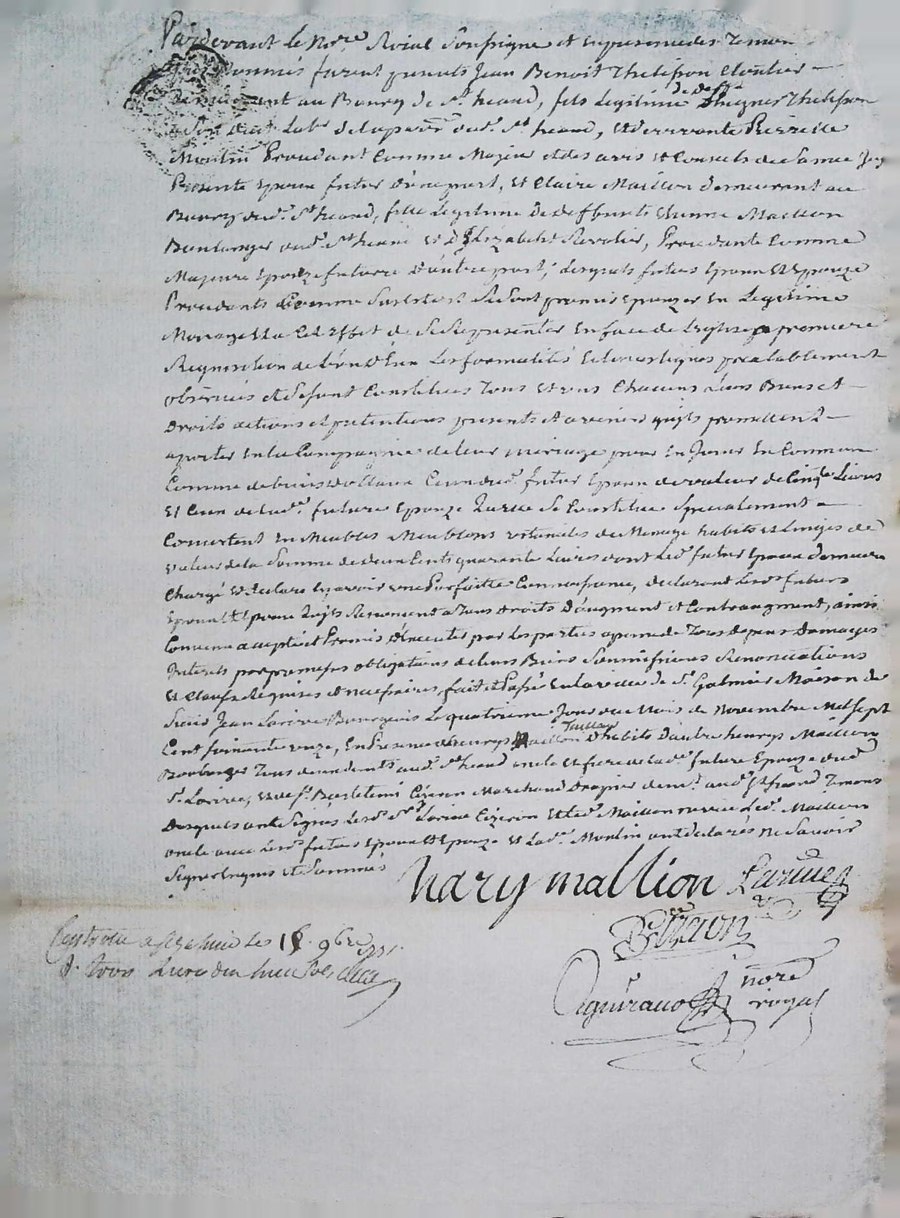 Pardevant le No.re Roial Soussigné et en presence des Temoins
nommés furent presents Jean Benoit Thelisson Cloutier
demeurant au Bourg de St heand, fils Legitime de deft Thelisson
Lab.r de la parr.e dud. St heand, et de vivante Pierrette
Moulin Procedant Comme Majeur et des avis et Conseils de Sa mere Icy
Presente Epoux futur D'une part, et Claire Maillon demeurant au
Bourg dud. St heand, fille Legitime de deffunts Etienne Maillon
Boulanger aud. St heand et D'Elizabeth Revolier, Procedante Comme
Majeure Epouze future D'autre part; Lesquels futurs Epoux Et Epouze
Procedants Comme Sus est dit Se Sont promis Epouzer En Legitime
Mariage Et a Cet Effet de Se Representer En face de L'eglise a premiere
Requisition de L'un d'Eux Les formalités préalablement
observées et Se sont Constitués Tous et uns Chacuns Leurs Biens et
Droits actions et prétentions presents et avenirs qu'ils promettent
aporter En La Compagnie de leur mariage pour En Jouir En Commun
Comme de biens dottaux Ceux dud. futur Epoux de valeur de Cinq.te Livres
Et Ceux de Lad. future Epouze Qu'elle Se Constitue Specialement
Consistent En Meubles Meublans ustancilles de Menage habits et Linges de
valeur de la Somme de deux Cents quarante Livres dont Led. futur Epoux demeure
Chargé Et declare En avoir une Parfaitte Connoissance, declarant Lesd. futurs
Epoux Et Epouze qu'ils Renoncent a Tous Droits D'augment et Contraugment, ainsi
Convenu accepté et Promis D'executer par les parties a peine de Tous depens Domages
Interets par promesses obligations de leurs Biens Soumissions Renonciations
Et Clauses Requises et necessaires, fait et Passé En la ville de St Galmier Maison de
Sieur Jean Larive Bourgeois Le quatrieme Jour du Mois de Novembre Mil Sept
Cent soixante onze, En Presence d'henrys Maillon Tailleur D'habits D'autre henrys Maillon
Boulanger Tous deux demts aud. St heand oncle et frere de Lad. future Epouze dud.
Sr Larive, et de Sr Bartelemi Cizeron Marchand Drapier demt aud. St heand Temoins
Desquels ont Signés Lesd. Srs Larive Cizeron et Led. Maillon Led. Maillon
oncle avec Lesd. futurs Epoux Et Epouze Et Lad. Moulin ont declarés Ne Savoir
Signer Enquis et Sommés
hary mallion Larive
B Cizeron
No.re
royal
Controllé a le 18. 9bre 1771.
R. trois Livres dix huit Sols